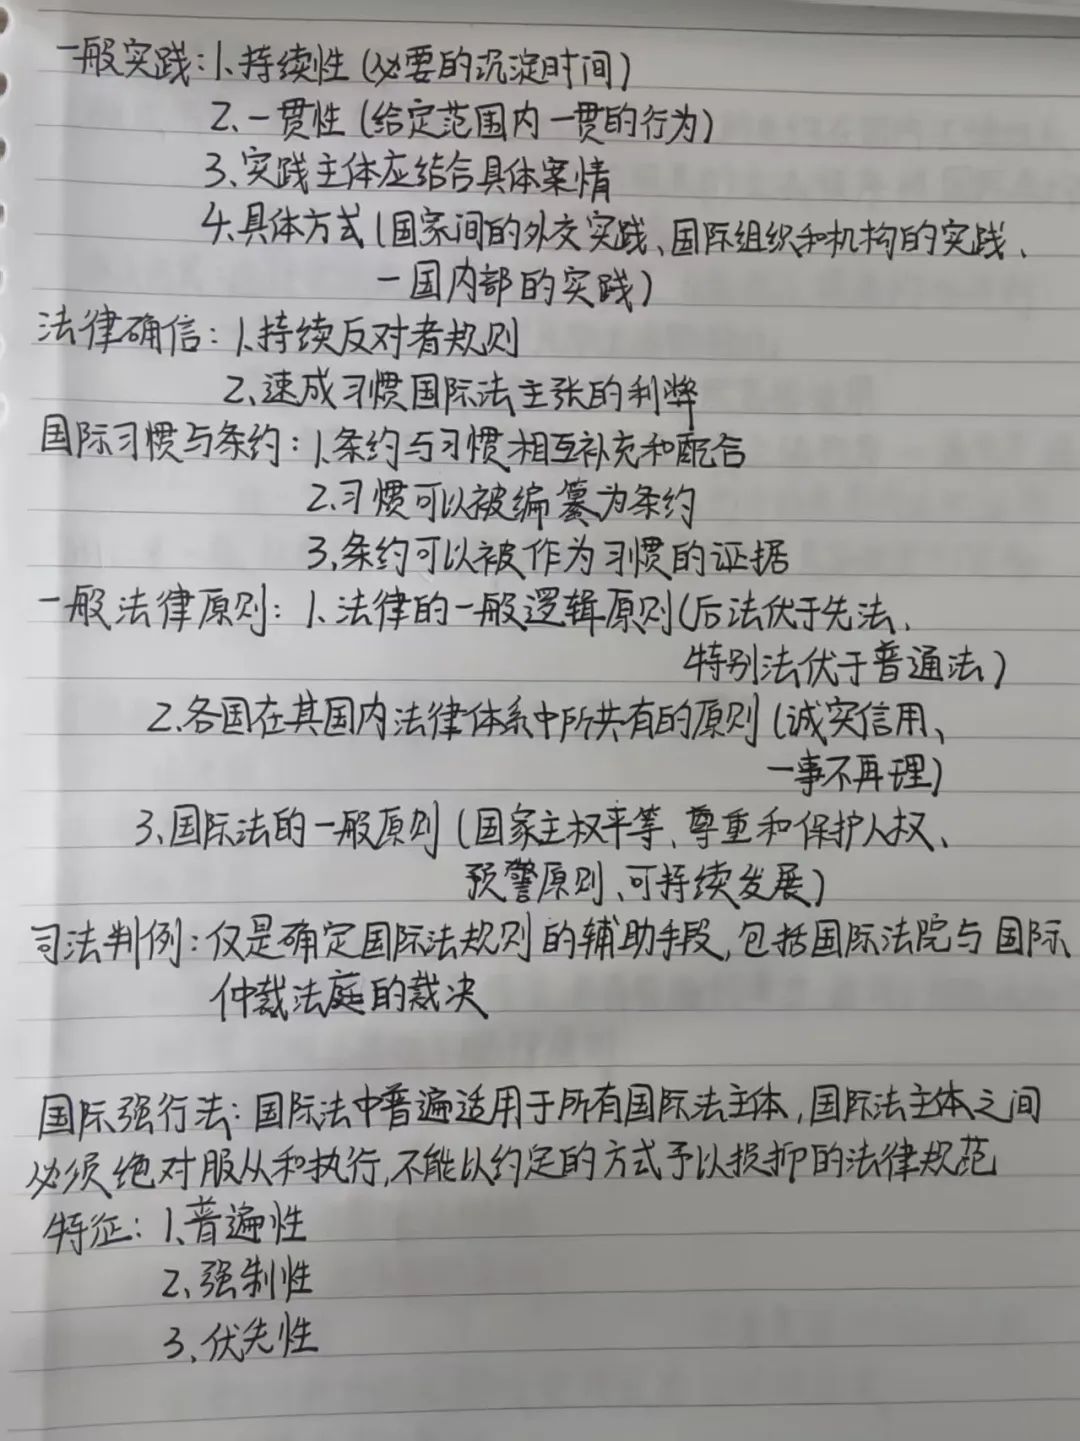 一般实践:1、持续性(必要的沉淀时间)
2、一贯性(给定范围内一贯的行为)
3、实践主体应结合具体案情
4、具体方式(国家间的外交实践、国际组织和机构的实践、
一国内部的实践)
法律确信:1、持续反对者规则
2、速成习惯国际法主张的利弊
国际习惯与条约:1、条约与习惯相互补充和配合
2、习惯可以被编纂为条约
3、条约可以被作为习惯的证据
一般法律原则:1、法律的一般逻辑原则(后法优于先法、
特别法优于普通法)
2、各国在其国内法律体系中所共有的原则(诚实信用、
一事不再理)
3、国际法的一般原则(国家主权平等、尊重和保护人权、
预警原则、可持续发展)
司法判例:仅是确定国际法规则的辅助手段,包括国际法院与国际
仲裁法庭的裁决
国际强行法:国际法中普遍适用于所有国际法主体,国际法主体之间
必须绝对服从和执行,不能以约定的方式予以损抑的法律规范
特征:1、普遍性
2、强制性
3、优先性